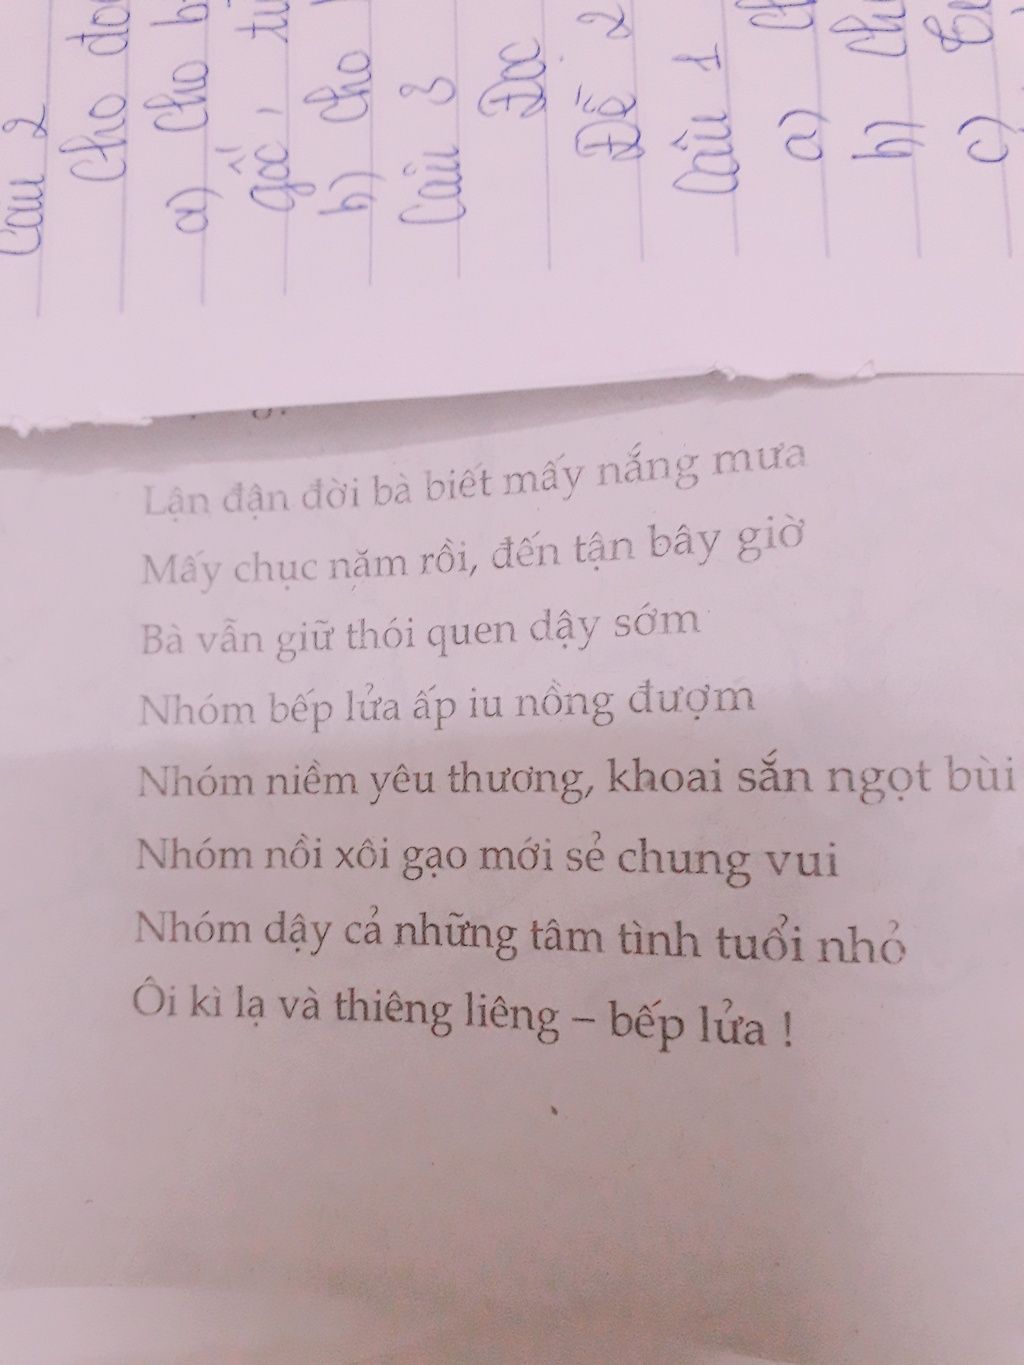 Câu 2
Cho
a) Cho
gốc,
b) Cho
Câu 3
Đọc
Đề 2
Câu 1
a)
b)
c)
Lận đận đời bà biết mấy nắng mưa
Mấy chục năm rồi, đến tận bây giờ
Bà vẫn giữ thói quen dậy sớm
Nhóm bếp lửa ấp iu nồng đượm
Nhóm niềm yêu thương, khoai sắn ngọt bùi
Nhóm nồi xôi gạo mới sẻ chung vui
Nhóm dậy cả những tâm tình tuổi nhỏ
Ôi kì lạ và thiêng liêng – bếp lửa !